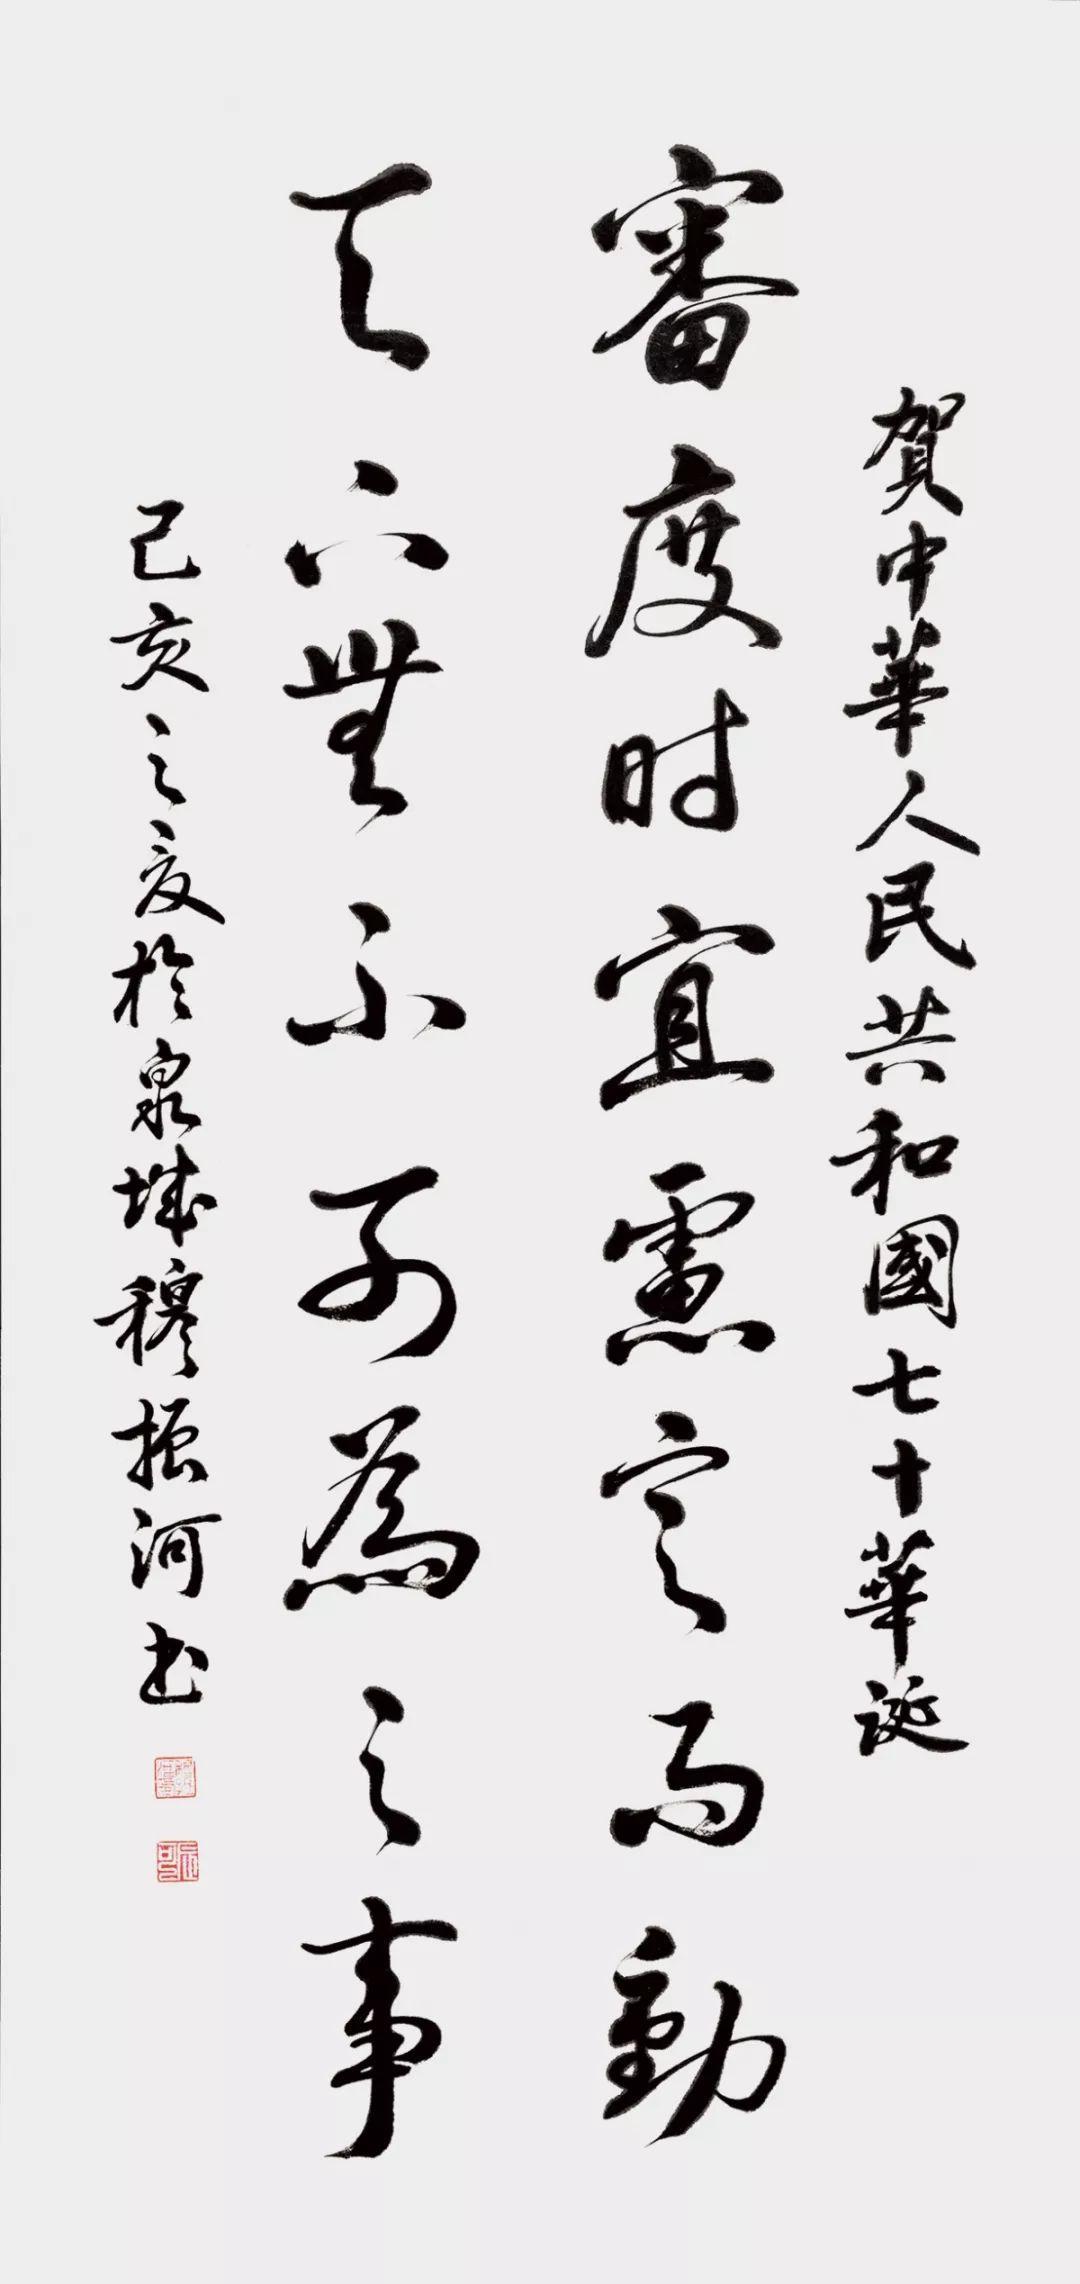 賀中華人民共和國七十華誕
審度时宜慮定而動
天下無不可為之事
己亥之夏於泉城穆振河书